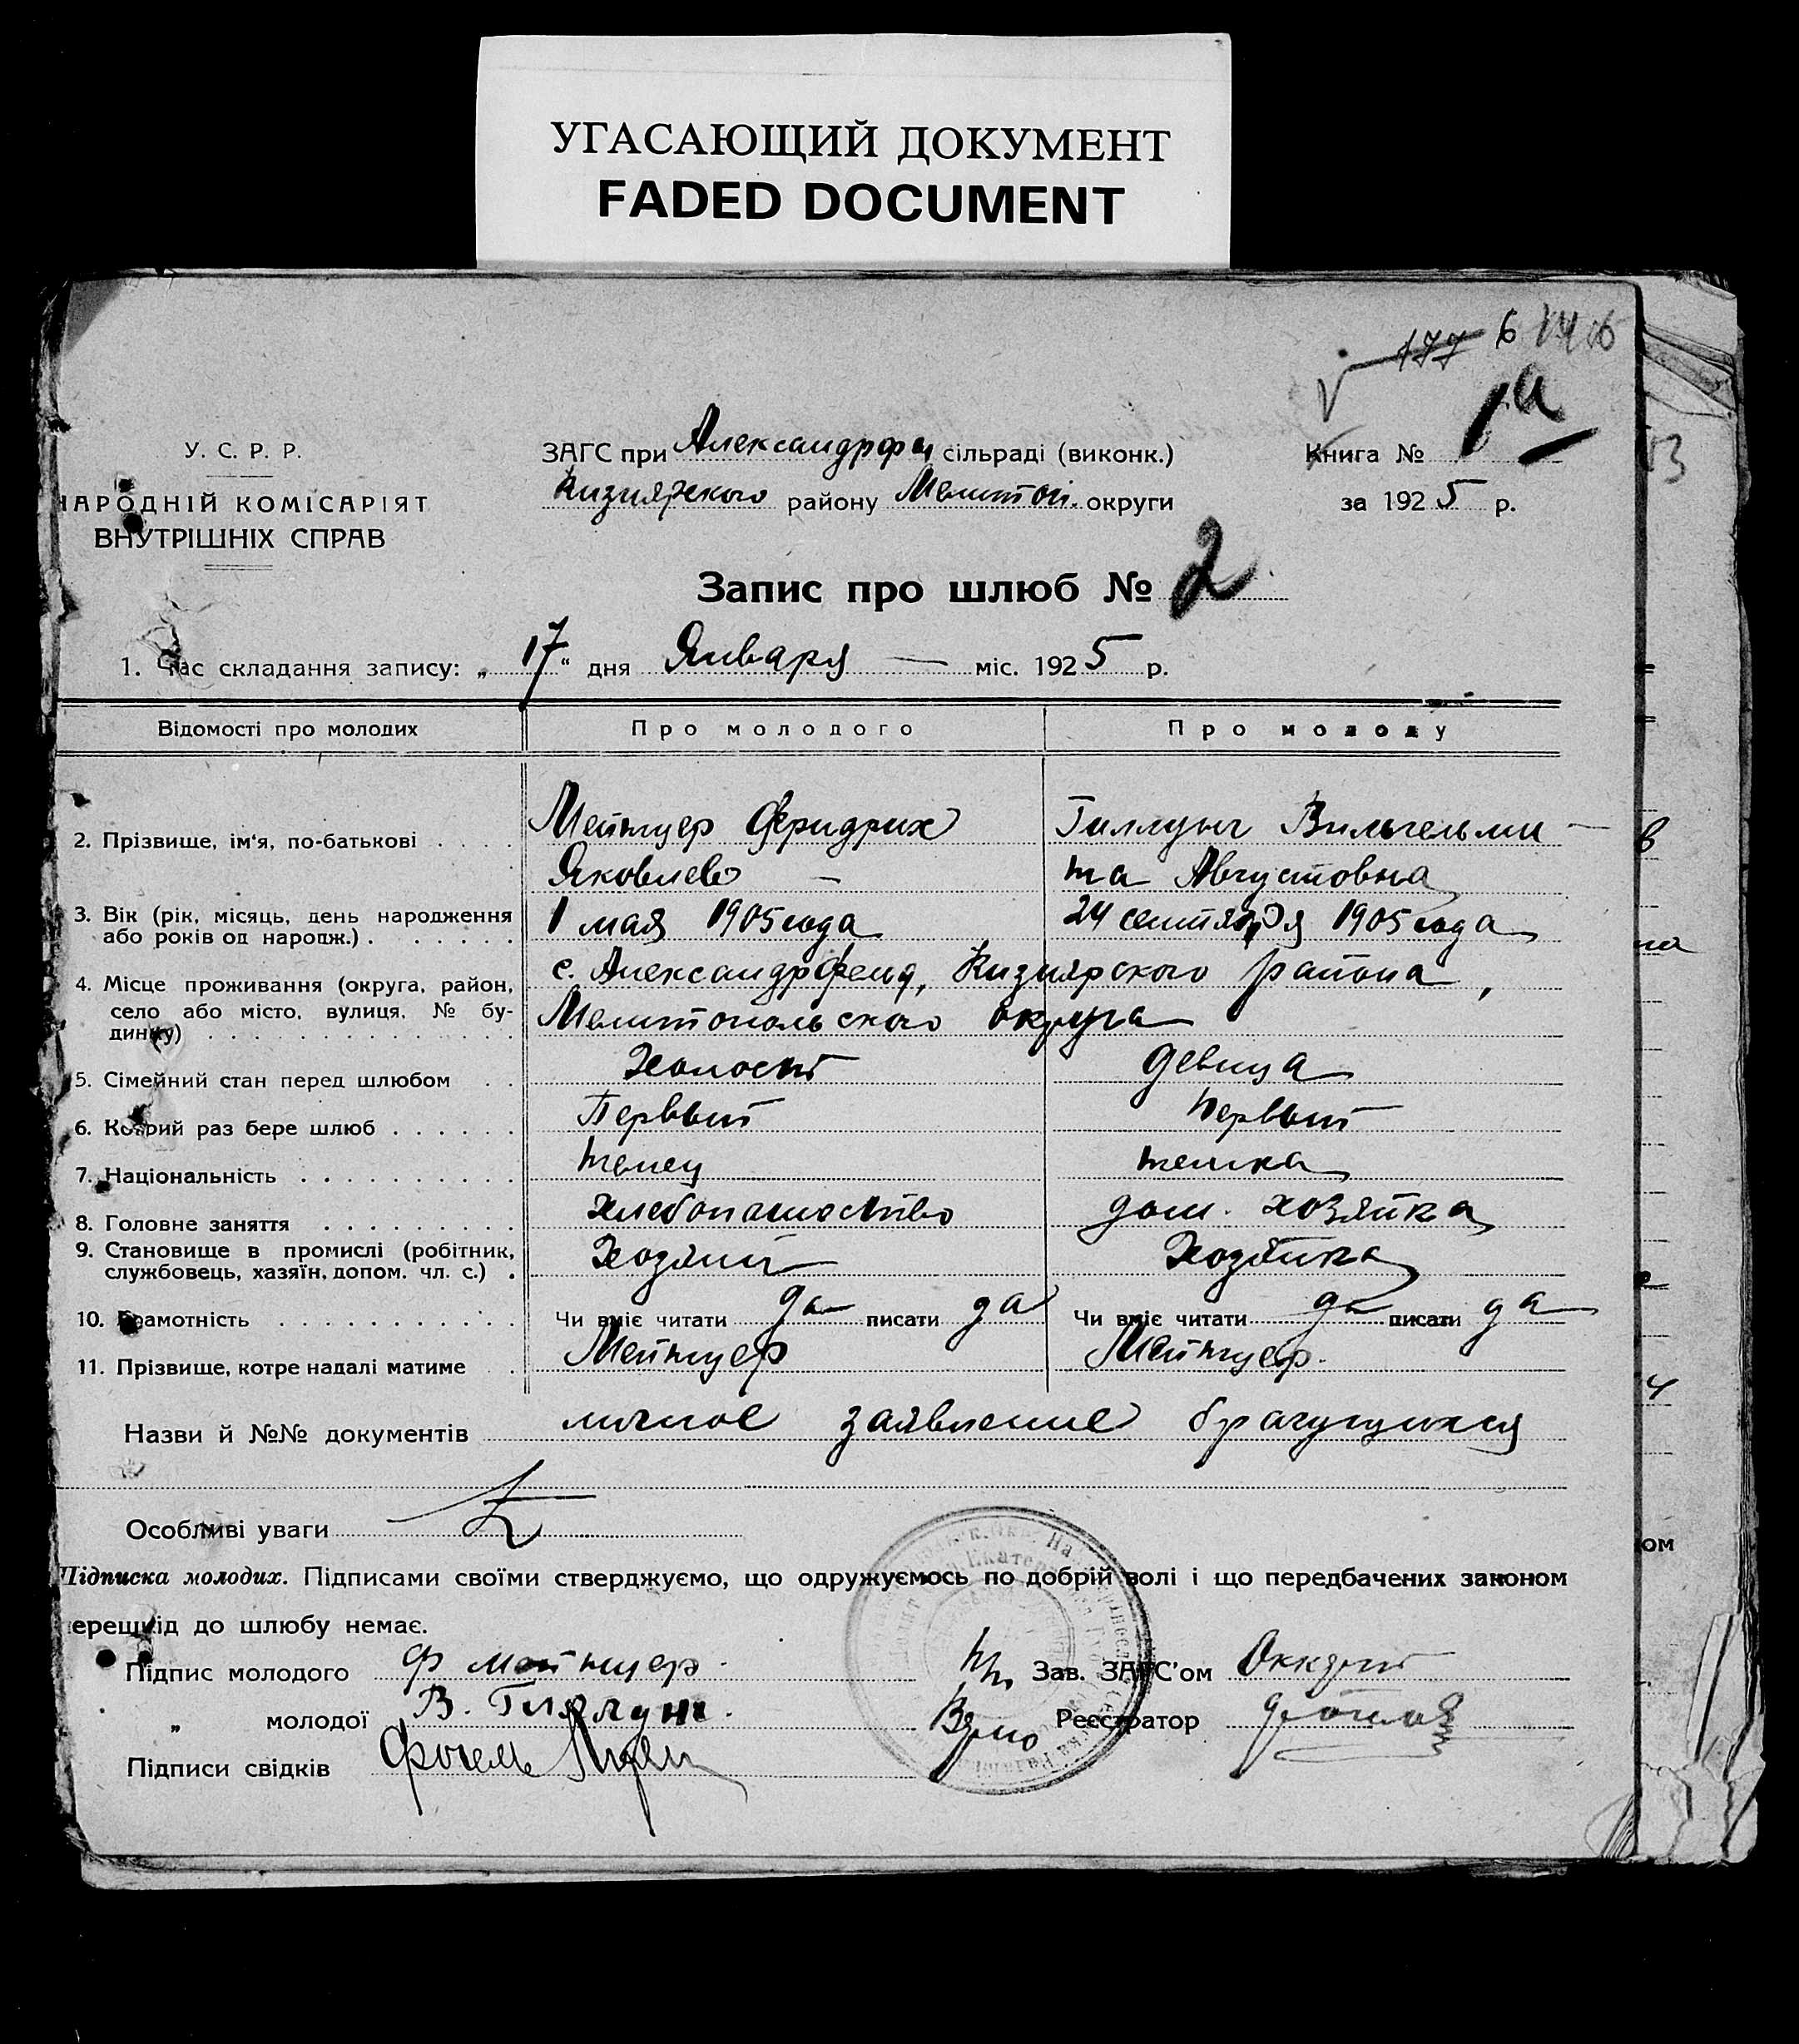 УГАСАЮЩИЙ ДОКУМЕНТ
FADED DOCUMENT
177 6 146
1а
У. С. Р. Р.
НАРОДНІЙ КОМІСАРІЯТ
ВНУТРІШНІХ СПРАВ
ЗАГС при Александрфел сільраді (виконк.)
Кизиярского району Мелитоп. округи
Книга №
за 1925 р.
Запис про шлюб № 2
1. Час складання запису: „17“ дня Января — міс. 1925 р.
Відомості про молодих Про молодого Про молоду
2. Прізвище, ім'я, по-батькові Мейнцер Фридрих Гиллунг Вильгельми-
Яковлев — на Августовна
3. Вік (рік, місяць, день народження 1 мая 1905 года 24 сентября 1905 года
або років од народж.)
4. Місце проживання (округа, район, с. Александрфельд, Кизиярского района,
село або місто, вулиця, № бу- Мелитопольского округа
динку)
5. Сімейний стан перед шлюбом Холост девица
6. Котрий раз бере шлюб Первый первый
7. Національність немец немка
8. Головне заняття хлебопашество дом. хозяйка
9. Становище в промислі (робітник, Хозяин Хозяйка
службовець, хазяїн, допом. чл. с.)
10. Грамотність Чи вміє читати да писати да Чи вміє читати да писати да
11. Прізвище, котре надалі матиме Мейнцер Мейнцер.
Назви й №№ документів личное заявление брачущихся
Особливі уваги
Підписка молодих. Підписами своїми стверджуємо, що одружуємось по добрій волі і що передбачених законом
перешкід до шлюбу немає.
Підпис молодого Ф Мейнцер. Зав. ЗАГС'ом
„ молодої В. Гиллунг. Врио Реєстратор
Підписи свідків Фогель